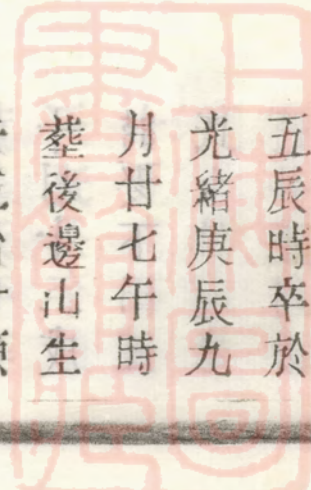 五辰時卒於
光緒庚辰九
月廿七午時
塟後邊山生